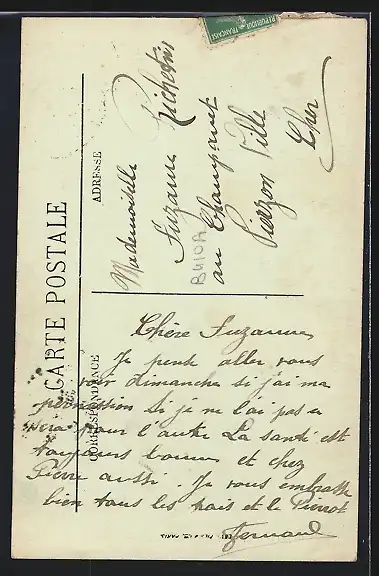 RÉPUBLIQUE FRANÇAISE
CARTE POSTALE
ADRESSE
Mademoiselle
Suzanne Richefin
au Champanet
Vierzon Ville
Cher
B410A
CORRESPONDANCE
Chère Suzanne
Je pense aller vous
voir dimanche si j'ai ma
permission Si je ne l'ai pas ce
sera pour l'autre La santé est
toujours bonne et chez
Pierre aussi. Je vous embrasse
bien tous les trois et le Pierrot
Fernand
PARIS